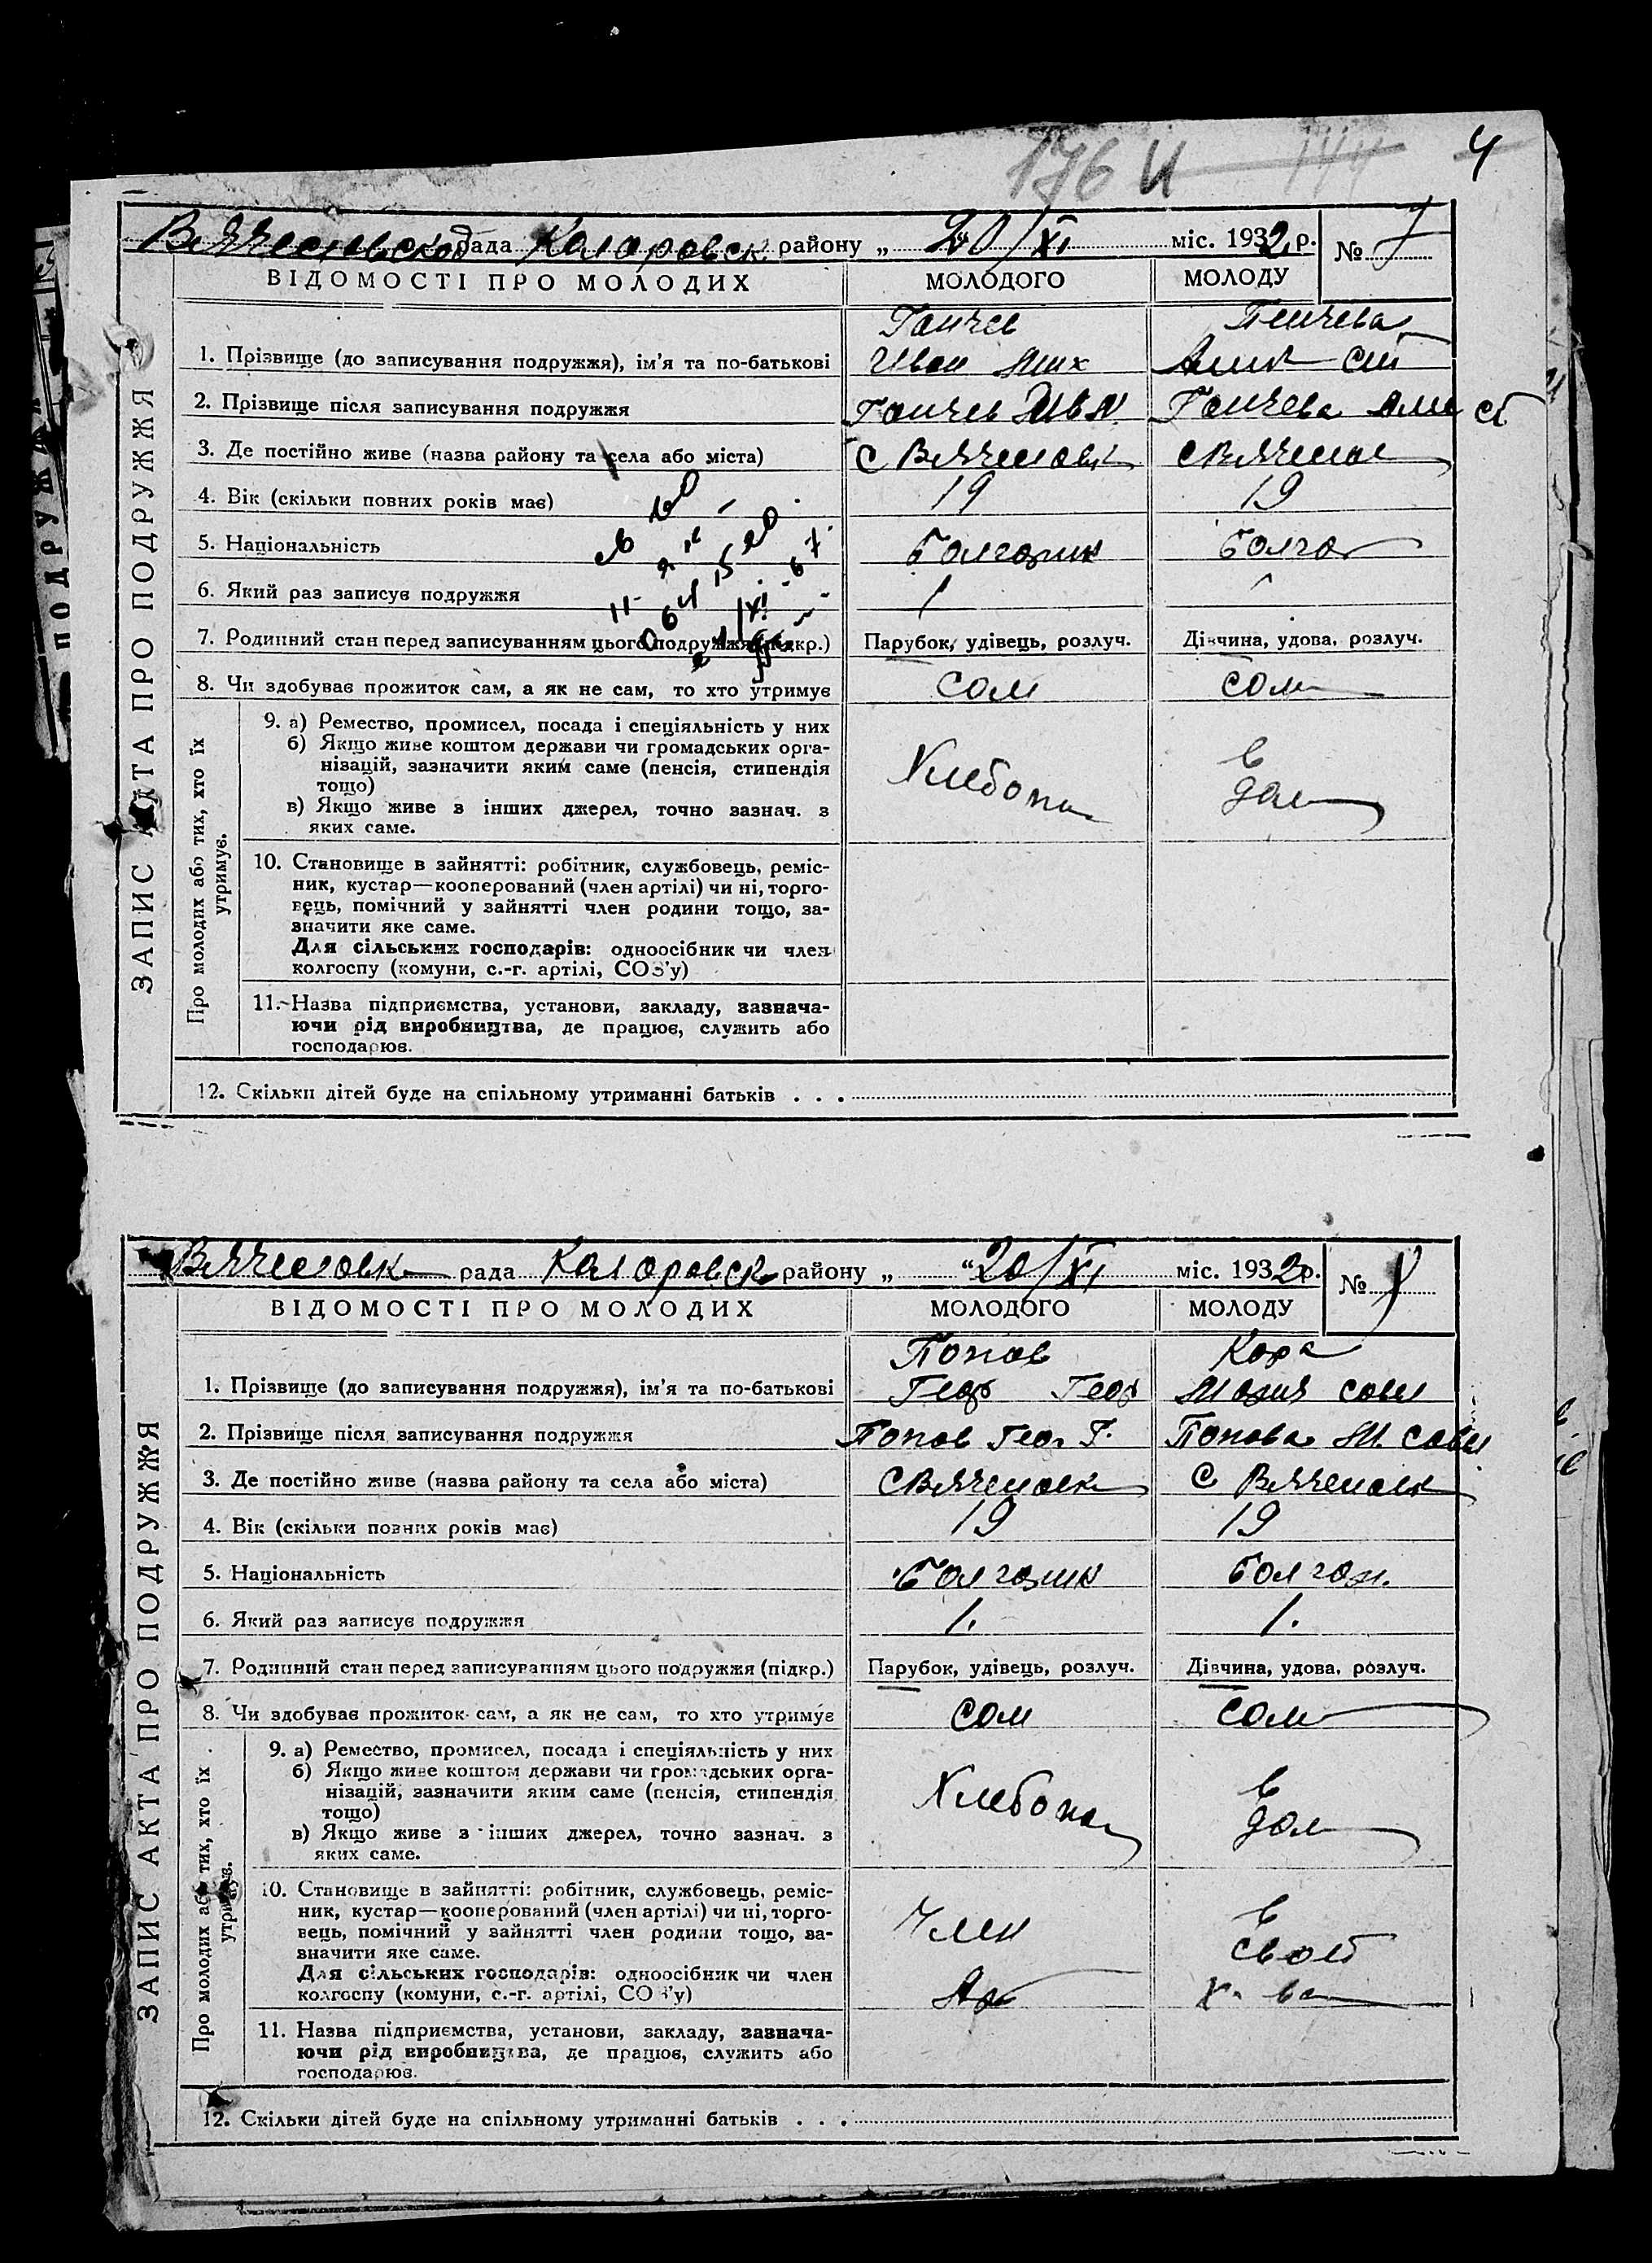 176 И 144 4
Вячеславской рада Коларовск району „ 20/XI міс. 1932 р. № 7
ВІДОМОСТІ ПРО МОЛОДИХ МОЛОДОГО МОЛОДУ
Ганчев Пенчева
1. Прізвище (до записування подружжя), ім'я та по-батькові Иван Мих
2. Прізвище після записування подружжя Ганчев Ив М Ганчева
3. Де постійно живе (назва району та села або міста)
4. Вік (скільки повних років має) 19 19
5. Національність болгарин болгар
6. Який раз записує подружжя 1
7. Родинний стан перед записуванням цього подружжя (підкр.) Парубок, удівець, розлуч. Дівчина, удова, розлуч.
8. Чи здобував прожиток сам, а як не сам, то хто утримує сам сам
9. а) Ремество, промисел, посада і спеціяльність у них
б) Якщо живе коштом держави чи громадських орга-
нізацій, зазначити яким саме (пенсія, стипендія
тощо)
в) Якщо живе з інших джерел, точно зазнач. з
яких саме.
Хлебопа в
дом
10. Становище в зайнятті: робітник, службовець, реміс-
ник, кустар—кооперований (член артілі) чи ні, торго-
вець, помічний у зайнятті член родини тощо, за-
значити яке саме.
Для сільських господарів: одноосібник чи член
колгоспу (комуни, с.-г. артілі, СОЗ'у)
11. Назва підприємства, установи, закладу, зазнача-
ючи рід виробництва, де працює, служить або
господарює.
12. Скільки дітей буде на спільному утриманні батьків . . .
ЗАПИС АКТА ПРО ПОДРУЖЖЯ
Про молодих або тих, хто їх
утримує.
ПОДРУЖЖЯ
Вячеславк рада Коларовск району „ “20/XI міс. 1932 р. №
ВІДОМОСТІ ПРО МОЛОДИХ МОЛОДОГО МОЛОДУ
Попов Кара
1. Прізвище (до записування подружжя), ім'я та по-батькові Геор Геор Мария Сави
2. Прізвище після записування подружжя Попов Геор Г. Попова М. Сави
3. Де постійно живе (назва району та села або міста)
4. Вік (скільки повних років має) 19 19
5. Національність болгарин болгар.
6. Який раз записує подружжя 1. 1.
7. Родинний стан перед записуванням цього подружжя (підкр.) Парубок, удівець, розлуч. Дівчина, удова, розлуч.
8. Чи здобував прожиток сам, а як не сам, то хто утримує сам сам
9. а) Ремество, промисел, посада і спеціяльність у них
б) Якщо живе коштом держави чи громадських орга-
нізацій, зазначити яким саме (пенсія, стипендія
тощо)
в) Якщо живе з інших джерел, точно зазнач. з
яких саме.
Хлебопа в
дом
10. Становище в зайнятті: робітник, службовець, реміс-
ник, кустар—кооперований (член артілі) чи ні, торго-
вець, помічний у зайнятті член родини тощо, за-
значити яке саме.
Для сільських господарів: одноосібник чи член
колгоспу (комуни, с.-г. артілі, СОЗ'у)
Член в
Ар своє
х-ва
11. Назва підприємства, установи, закладу, зазнача-
ючи рід виробництва, де працює, служить або
господарює.
12. Скільки дітей буде на спільному утриманні батьків . . .
ЗАПИС АКТА ПРО ПОДРУЖЖЯ
Про молодих або тих, хто їх
утримує.